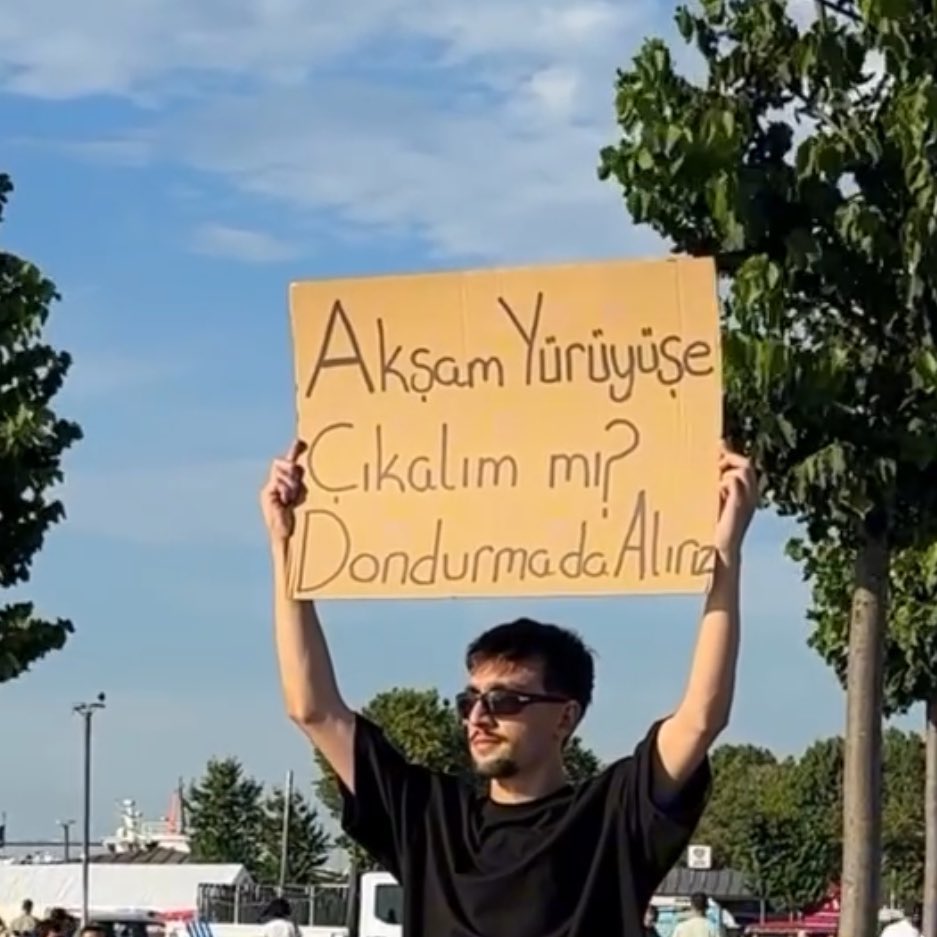 Akşam Yürüyüşe
Çıkalım mı?
Dondurma da Alırız